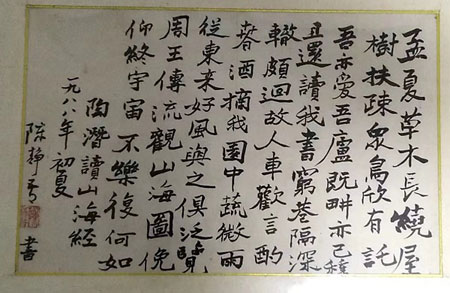 孟夏草木長繞屋
樹扶疎衆鳥欣有託
吾亦愛吾廬既畊亦已種
且還讀我書窮巷隔深
轍頗迴故人車歡言酌
春酒摘我園中蔬微雨
從東来好風與之俱泛覽
周王傳流觀山海圖俛
仰終宇宙不樂復何如
陶潛讀山海經
一九八八年初夏
陳靜書